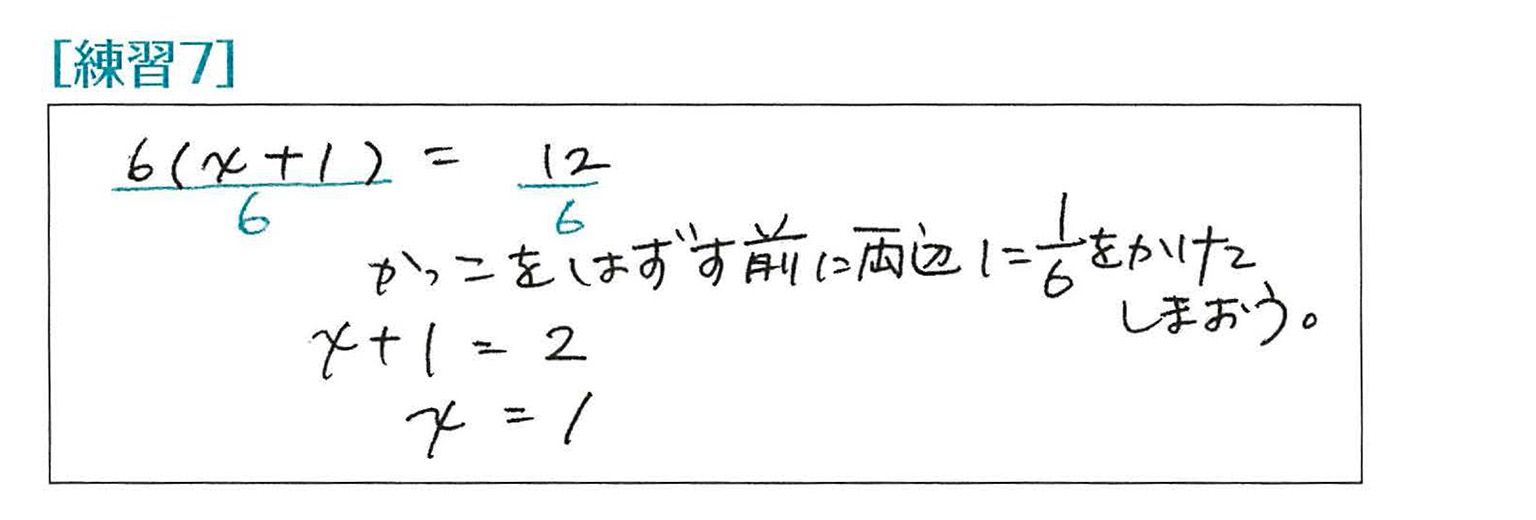 [練習7]
6(x+1) = 12
6 6
かっこをはずす前に両辺に1/6をかけて
しまおう。
x+1 = 2
x = 1